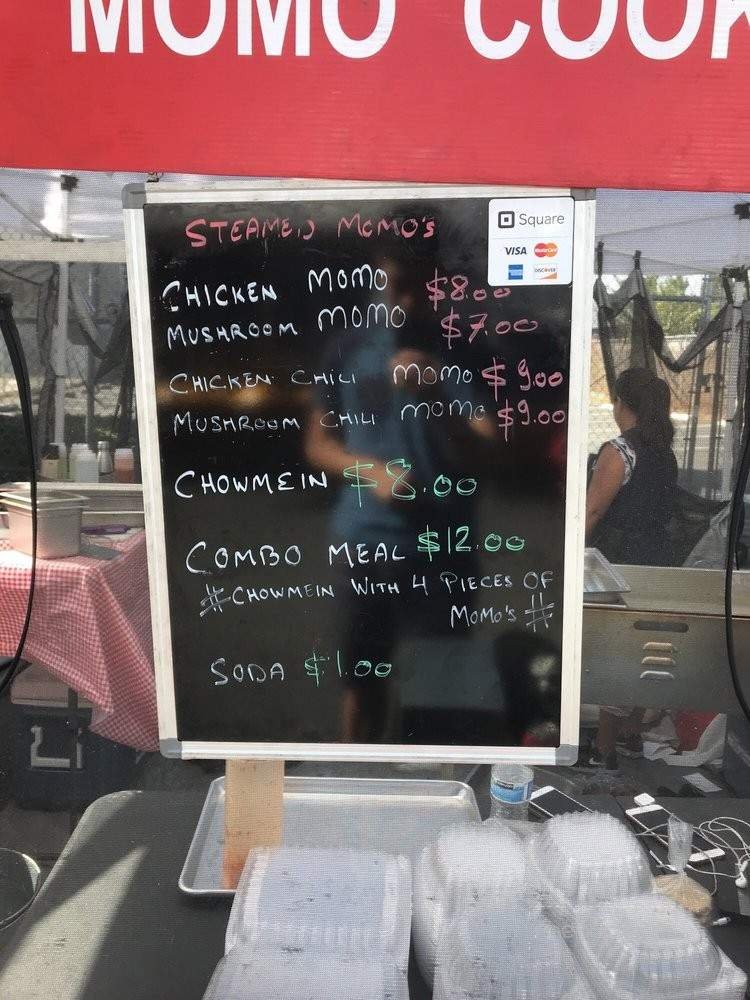 MOMO COOK
STEAMED MOMO's
Square
VISA MasterCard
DISCOVER
CHICKEN MOMO $8.00
MUSHROOM MOMO $7.00
CHICKEN CHILI MOMO $9.00
MUSHROOM CHILI MOMO $9.00
CHOWMEIN $8.00
COMBO MEAL $12.00
# CHOWMEIN WITH 4 PIECES OF
MOMO'S #
SODA $1.00